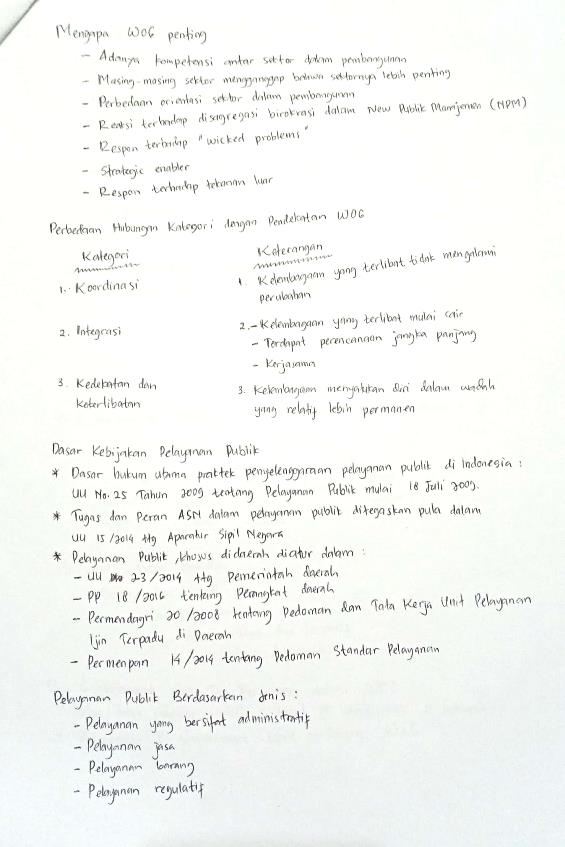 Mengapa WOG penting
- Adanya kompetensi antar sektor dalam pembangunan
- Masing-masing sektor mengganggap bahwa sektornya lebih penting
- Perbedaan orientasi sektor dalam pembangunan
- Reaksi terhadap disagregasi birokrasi dalam New Publik Manajemen (NPM)
- Respon terhadap "wicked problems"
- Strategic enabler
- Respon terhadap tekanan luar
Perbedaan Hubungan Kategori dengan Pendekatan WOG
Kategori
Keterangan
1. Koordinasi
1. Kelembagaan yang terlibat tidak mengalami
perubahan
2. Integrasi
2. - Kelembagaan yang terlibat mulai cair
- Terdapat perencanaan jangka panjang
- Kerjasama
3. Kedekatan dan
keterlibatan
3. Kelembagaan menyatukan diri dalam wadah
yang relatif lebih permanen
Dasar Kebijakan Pelayanan Publik
* Dasar hukum utama praktek penyelenggaraan pelayanan publik di Indonesia :
UU No. 25 Tahun 2009 tentang Pelayanan Publik mulai 18 Juli 2009.
* Tugas dan Peran ASN dalam pelayanan publik ditegaskan pula dalam
UU 15/2014 ttg Aparatur Sipil Negara
* Pelayanan Publik, khusus didaerah diatur dalam :
- UU No 23/2014 ttg Pemerintah daerah
- PP 18/2016 tentang Perangkat daerah
- Permendagri 20/2008 tentang Pedoman dan Tata Kerja Unit Pelayanan
Ijin Terpadu di Daerah
- Permenpan 14/2014 tentang Pedoman Standar Pelayanan
Pelayanan Publik Berdasarkan Jenis :
- Pelayanan yang bersifat administratif
- Pelayanan jasa
- Pelayanan barang
- Pelayanan regulatif